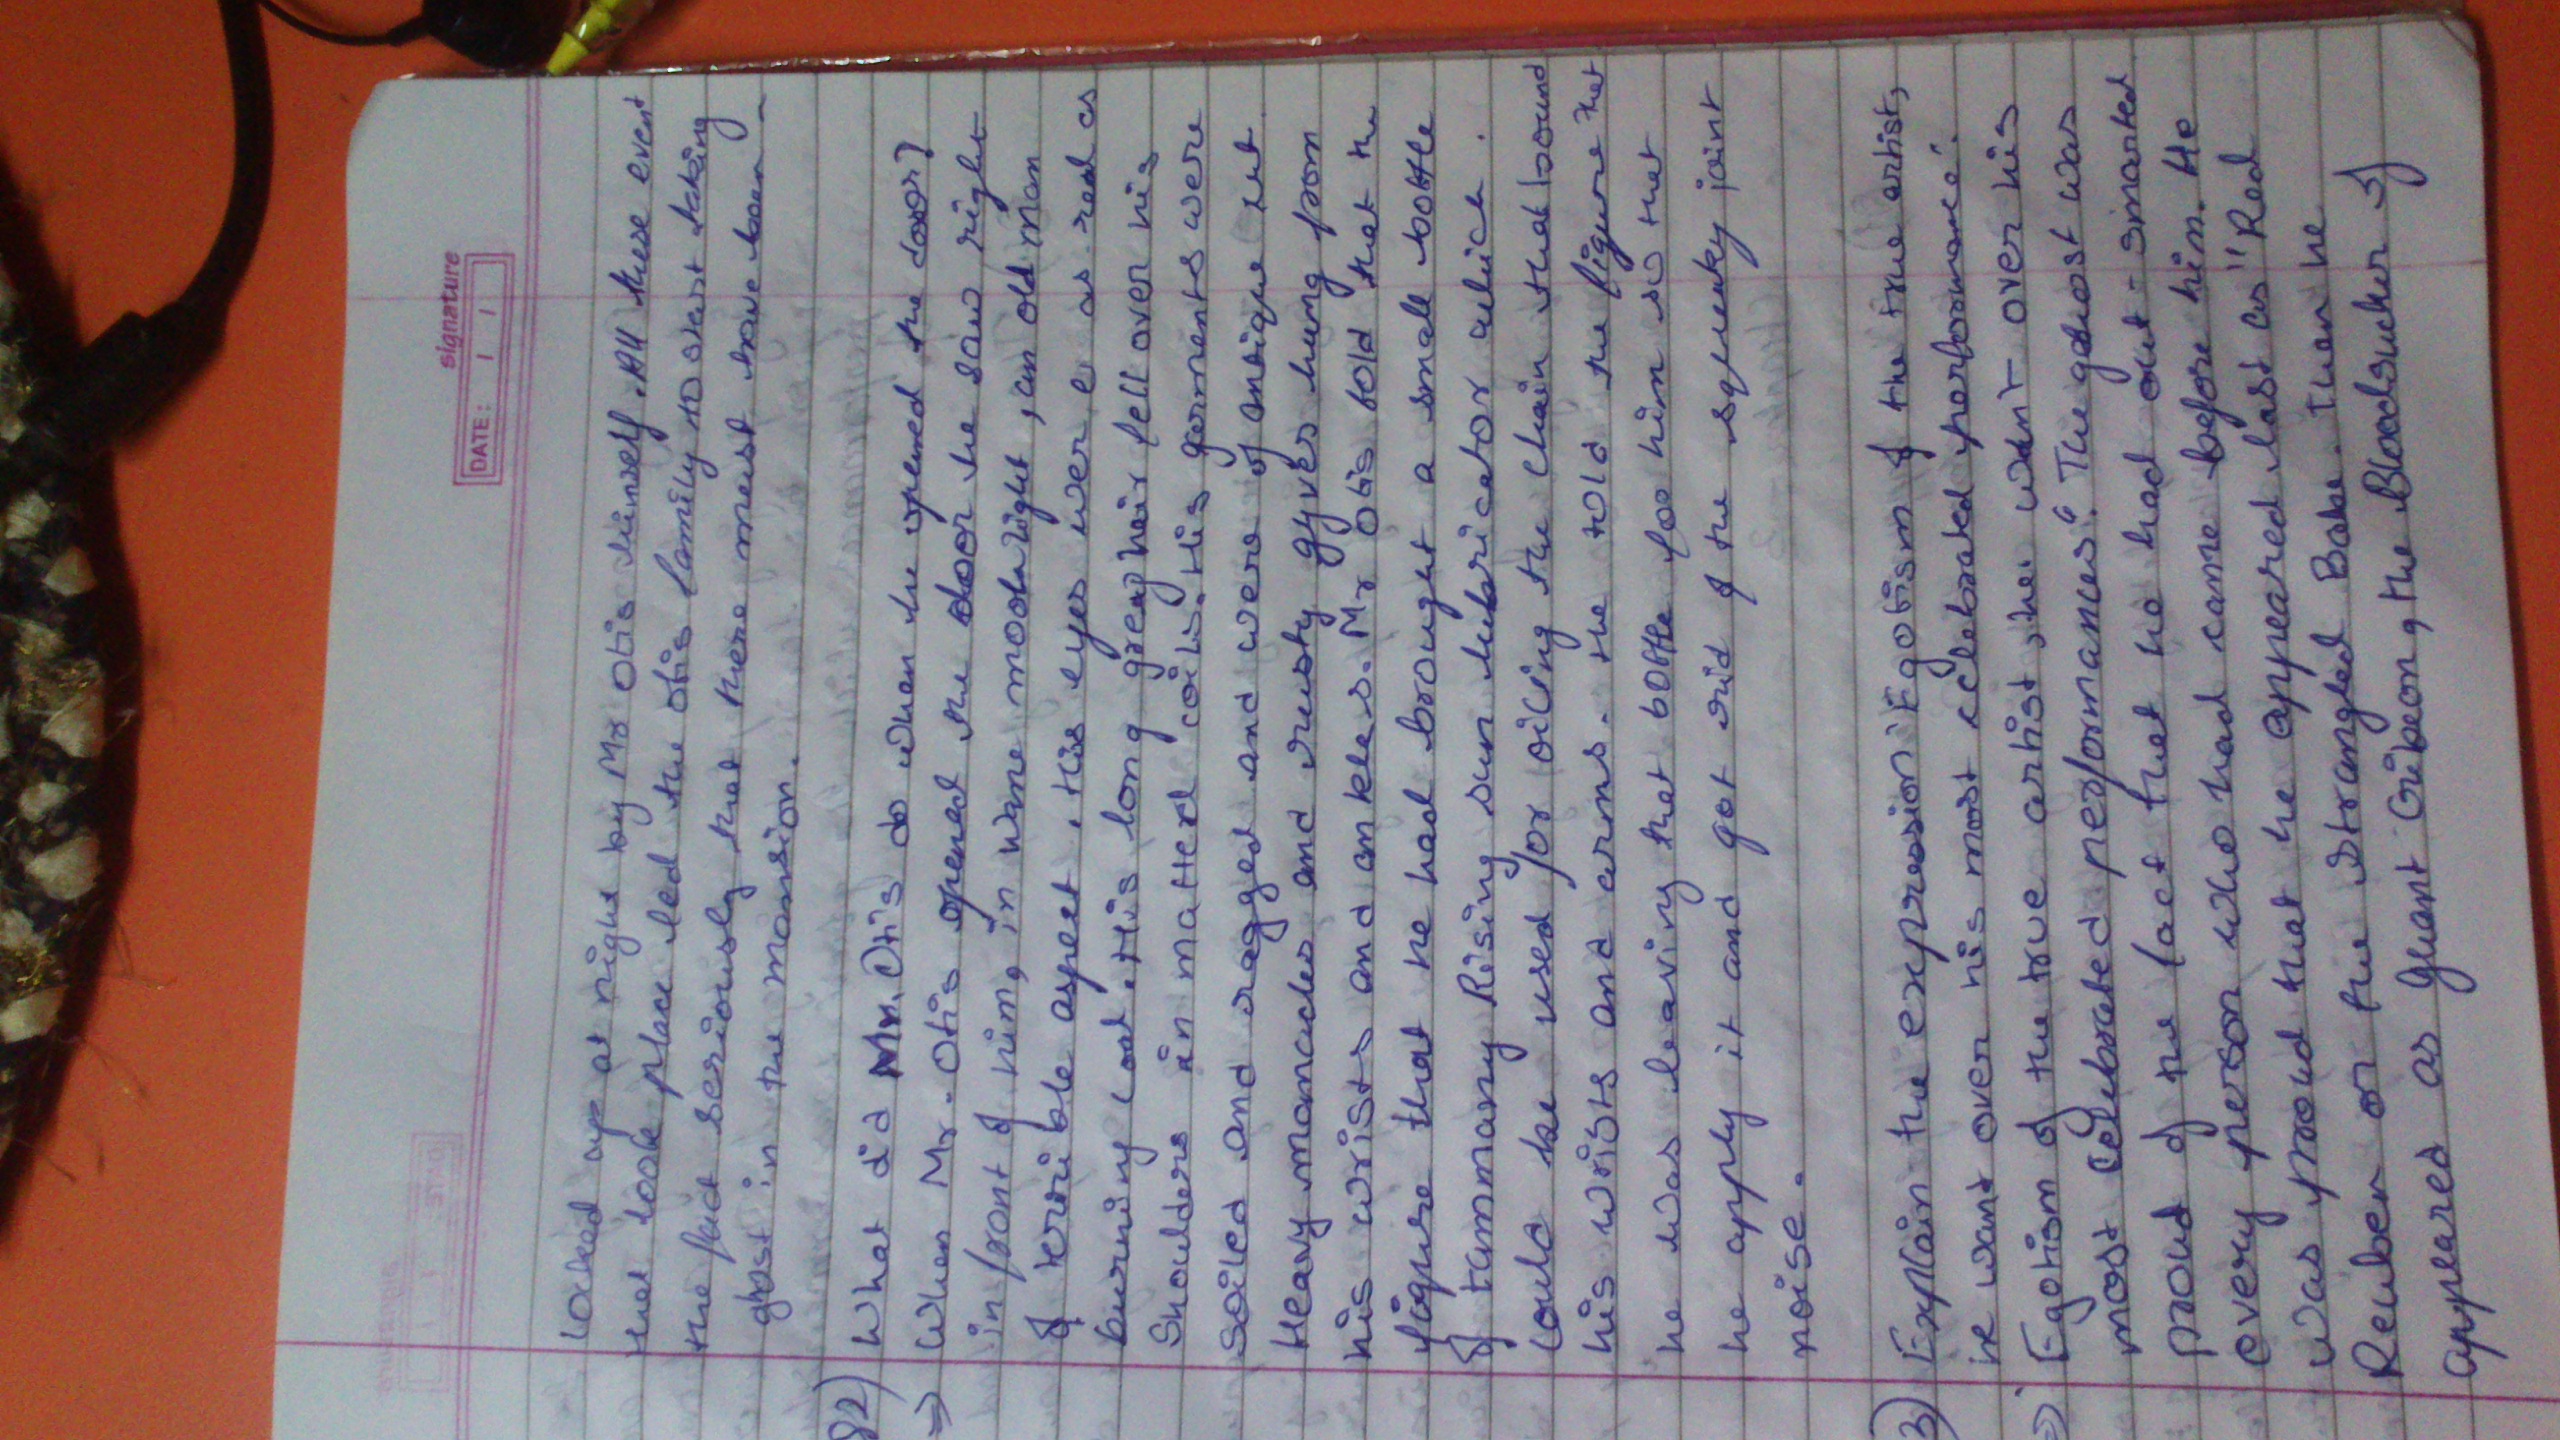 signature
DATE: / /
locked up at night by Mr Otis himself. All these event
that took place led the otis family to start taking
the fact seriously that there must have been
ghost in the mansion.
82) What did Mr. Otis do when he opened the door?
⇒ When Mr. Otis opened the door he saw right
in front of him, in wane moodn light, an old man
of terrible aspect. His eyes wer e as read as
burning coal. His long gray hair fell over his
Shoulders in matterd coils. His garments were
soiled and ragged and were of antique cut.
Heavy manacles and rusty gyves hung from
his wrists and ankles. Mr Otis told that the
figure that he had brought a small bottle
of tammany Rising sun lubricator which
could be used for oiling the chain that bound
his wrists and arms. He told the figure that
he was leaving that bottle foe him so that
he apply it and got rid of the squeaky joint
noise.
3) Explain the expression 'Egotism of the true artist,
he want over his most celebrated performance'.
⇒ 'Egotism of the true artist, he went over his
most celebrated performances'. The ghost was
proud of the fact that he had out-smarted
every person who had came before him. He
was proud that he appeared last as "Red
Reuben or the strangled Babe. Then he
appeared as Giant Gibeon, the Bloodsucker of